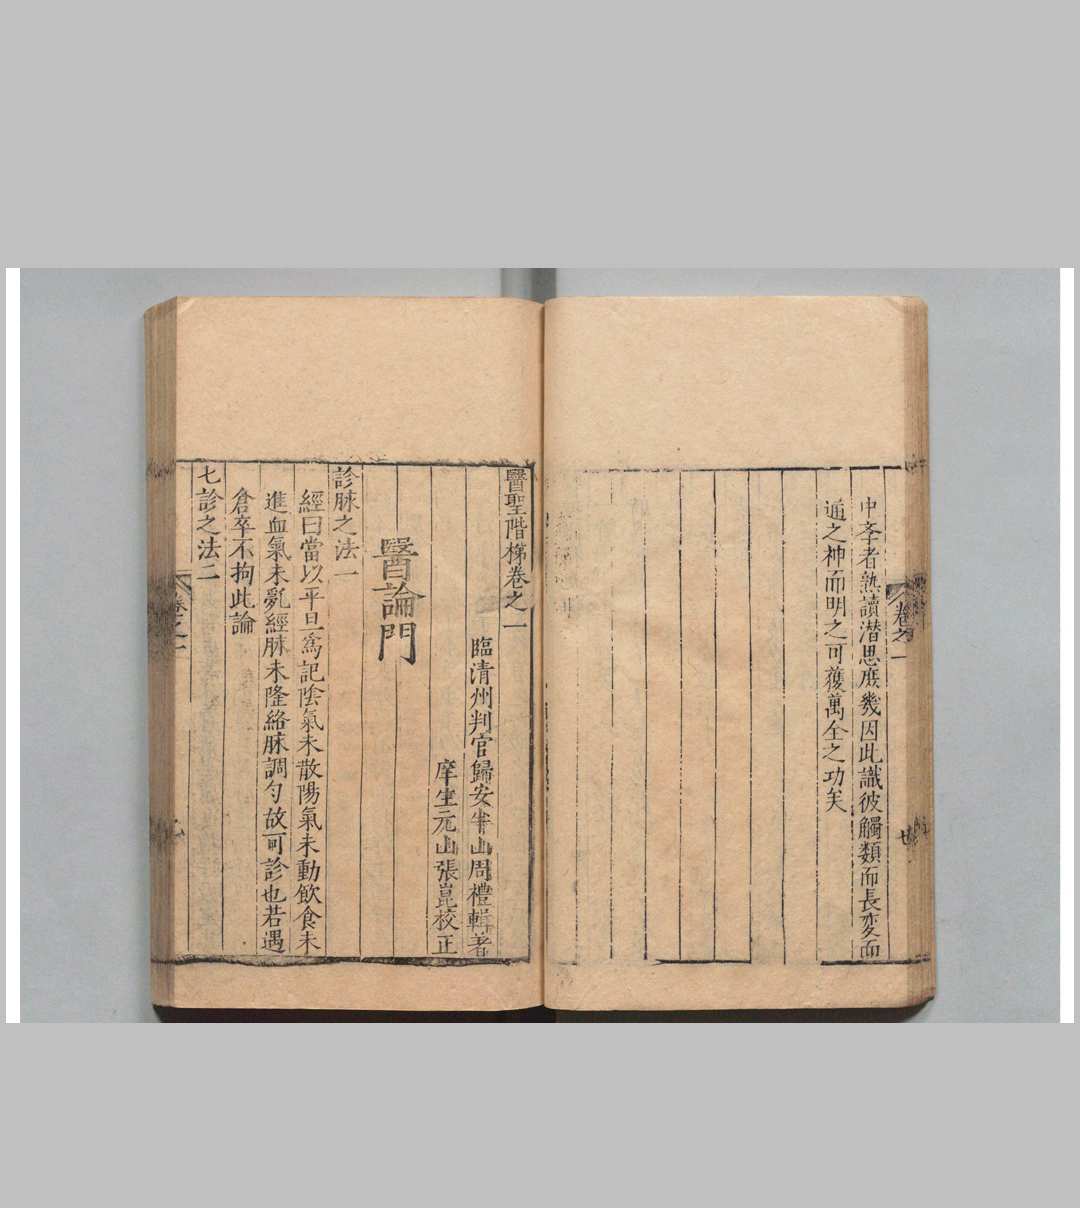 中李者熟讀潛思庻幾因此識彼觸類而長変而
通之神而明之可獲萬全之功矣
卷之一
醫聖階梯卷之一
臨清州判官歸安半山周禮輯著
庠生元山張崑校正
醫論門
診脉之法一
經曰當以平旦爲記陰氣未散陽氣未動飲食未
進血氣未亂經脉未隆絡脉調勻故可診也若遇
倉卒不拘此論
七診之法二
卷之一